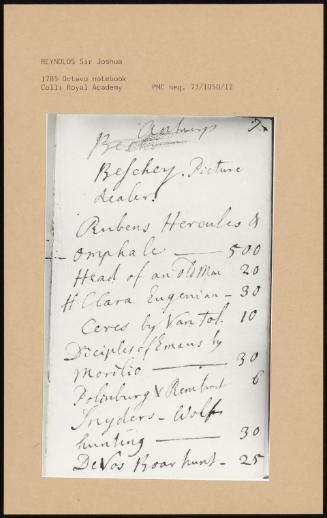 REYNOLDS Sir Joshua
1785 Octavo notebook
Coll: Royal Academy PMC neg. 73/1050/12
Antwerp
Beschey. Picture
dealer.
Rubens Hercules &
Omphale — 500
Head of an old Man 20
St Clara Eugenian - 30
Ceres by Van Tol. 10
Diciples of Emaus by
Morilio — 30
Polinburg & Rembrant 6
Snyders - Wolf
hunting — 30
De Vos Boar hunt - 25